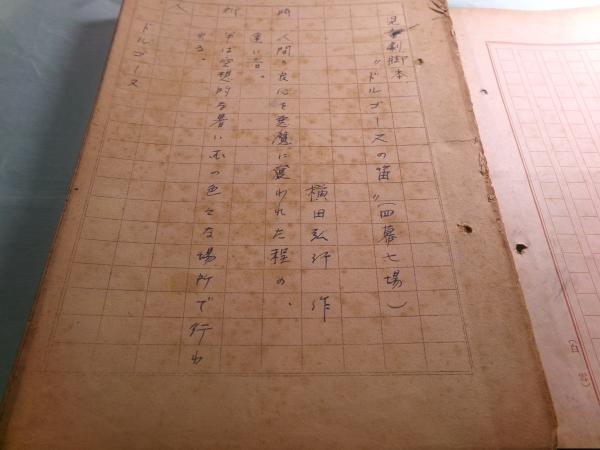 児童劇脚本
"ドルゴースの笛"(四幕七場)
横田弘行 作
時 人間の良心を悪魔に奪われた程の、
重い昔。
所 
半は空想的な暑い不の色々な場所で行わ
れる。
人
ドルゴース